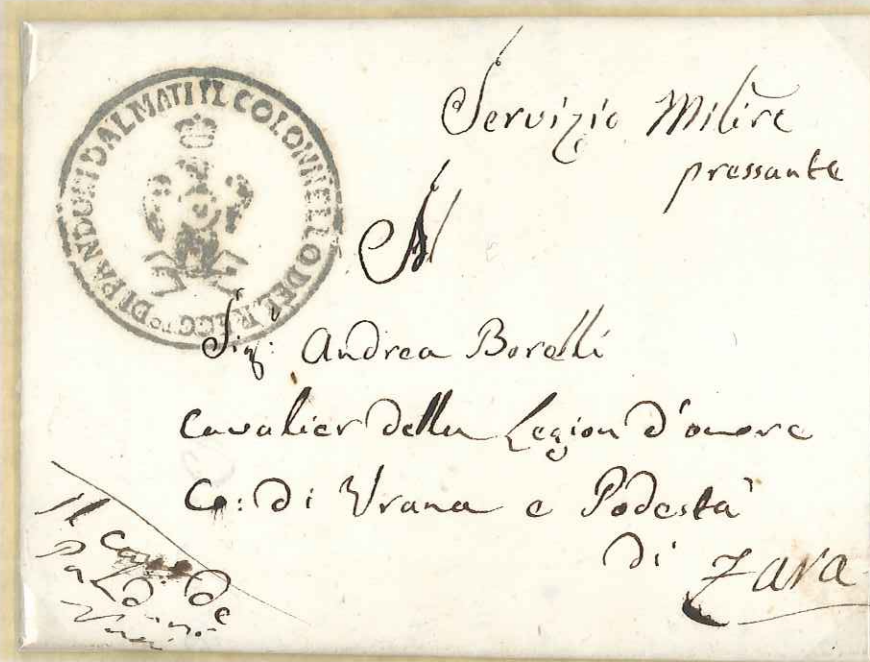 IL COLONNELLO DEL REGG.to DI PANDURI DALMATI
Servizio Milire
pressante
Al
Sig: Andrea Borelli
Cavalier della Legion d'onore
Co: di Vrana e Podestà
di Zara
Il